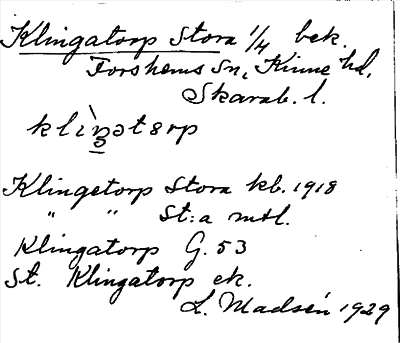 Klingatorp Stora 1/4 bek.
Forshems Sn, Kinne hd,
Skarab. l.
klìŋətɵrp
Klingetorp Stora kb. 1918
" " St:a mtl.
Klingatorp G. 53
St. Klingatorp ek.
L. Madsén 1929